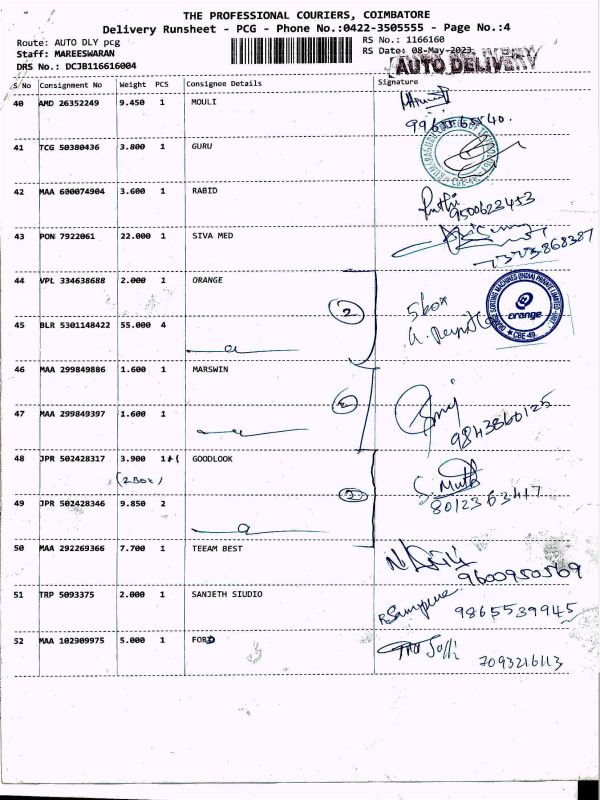 THE PROFESSIONAL COURIERS, COIMBATORE
Delivery Runsheet - PCG - Phone No.:0422-3505555 - Page No.:4
Route: AUTO DLY pcg RS No.: 1166160
Staff: MAREESWARAN RS Date: 08-May-2023
DRS No.: DCJB116616004 AUTO DELIVERY
S No Consignment No Weight PCS Consignee Details Signature
40 AMD 26352249 9.450 1 MOULI
41 TCG 50380436 3.800 1 GURU
42 MAA 600074904 3.600 1 RABID
9500623453
43 PON 7922061 22.000 1 SIVA MED
7373868387
44 VPL 334638688 2.000 1 ORANGE
2 5 box orange
CBE-49
45 BLR 5301148422 55.000 4
46 MAA 299849886 1.600 1 MARSWIN
2
47 MAA 299849397 1.600 1
9843860125
48 JPR 502428317 3.900 1 GOODLOOK
(2 Box)
2 8012363417
49 JPR 502428346 9.850 2
50 MAA 292269366 7.700 1 TEEAM BEST
9600950569
51 TRP 5093375 2.000 1 SANJETH SIUDIO
9865539945
52 MAA 102909975 5.000 1 FORD
7093216113